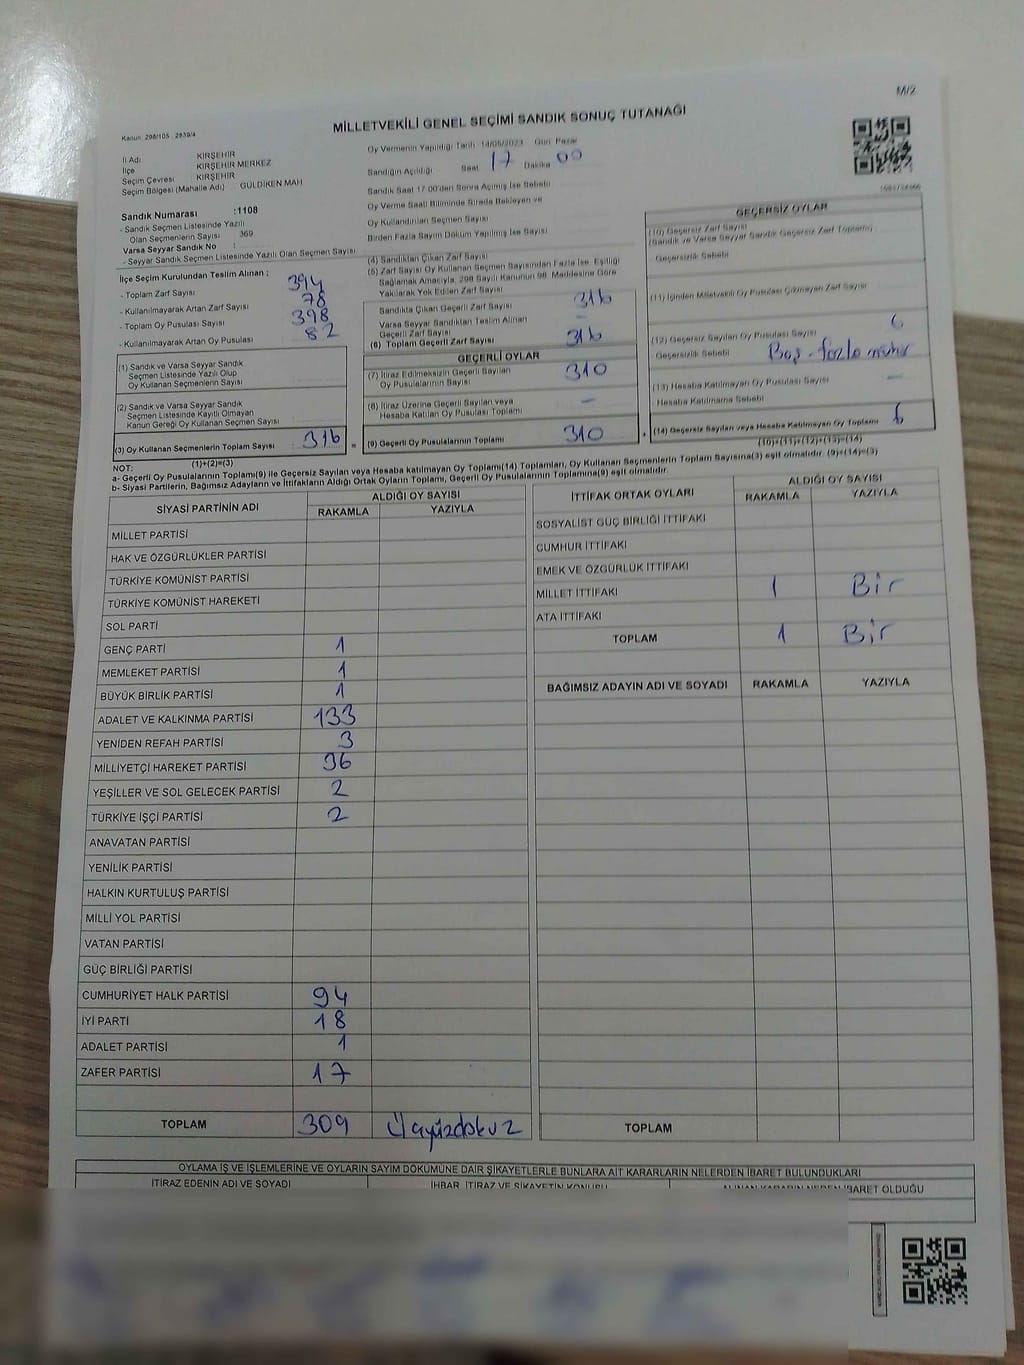 M/2
Kanun: 298/105 2839/4
MİLLETVEKİLİ GENEL SEÇİMİ SANDIK SONUÇ TUTANAĞI
İl Adı KIRŞEHİR
İlçe KIRŞEHİR MERKEZ
Seçim Çevresi KIRŞEHİR
Seçim Bölgesi (Mahalle Adı) GÜLDİKEN MAH
Sandık Numarası :1108
- Sandık Seçmen Listesinde Yazılı
Olan Seçmenlerin Sayısı : 369
Varsa Seyyar Sandık No :
- Seyyar Sandık Seçmen Listesinde Yazılı Olan Seçmen Sayısı
İlçe Seçim Kurulundan Teslim Alınan ;
- Toplam Zarf Sayısı 394
- Kullanılmayarak Artan Zarf Sayısı 78
- Toplam Oy Pusulası Sayısı 398
- Kullanılmayarak Artan Oy Pusulası 82
(1) Sandık ve Varsa Seyyar Sandık
Seçmen Listesinde Yazılı Olup
Oy Kullanan Seçmenlerin Sayısı
(2) Sandık ve Varsa Seyyar Sandık
Seçmen Listesinde Kayıtlı Olmayan
Kanun Gereği Oy Kullanan Seçmen Sayısı
(3) Oy Kullanan Seçmenlerin Toplam Sayısı : 316 =
(1)+(2)=(3)
Oy Vermenin Yapıldığı Tarih 14/05/2023 Gün Pazar
Sandığın Açıldığı Saat 17 Dakika 00
Sandık Saat 17:00'den Sonra Açılmış İse Sebebi
Oy Verme Saati Bitiminde Sırada Bekleyen ve
Oy Kullandırılan Seçmen Sayısı
Birden Fazla Sayım Döküm Yapılmış İse Sayısı
(4) Sandıktan Çıkan Zarf Sayısı
(5) Zarf Sayısı Oy Kullanan Seçmen Sayısından Fazla İse, Eşitliği
Sağlamak Amacıyla, 298 Sayılı Kanunun 98. Maddesine Göre
Yakılarak Yok Edilen Zarf Sayısı
Sandıkta Çıkan Geçerli Zarf Sayısı 316
Varsa Seyyar Sandıktan Teslim Alınan
Geçerli Zarf Sayısı
(6) Toplam Geçerli Zarf Sayısı 316
GEÇERLİ OYLAR
(7) İtiraz Edilmeksizin Geçerli Sayılan
Oy Pusulalarının Sayısı 310
(8) İtiraz Üzerine Geçerli Sayılan veya
Hesaba Katılan Oy Pusulası Toplamı -
(9) Geçerli Oy Pusulalarının Toplamı 310 +
GEÇERSİZ OYLAR
(10) Geçersiz Zarf Sayısı
(Sandık ve Varsa Seyyar Sandık Geçersiz Zarf Toplamı)
Geçersizlik Sebebi
(11) İçinden Milletvekili Oy Pusulası Çıkmayan Zarf Sayısı
(12) Geçersiz Sayılan Oy Pusulası Sayısı 6
Geçersizlik Sebebi Boş - fazla mühür
(13) Hesaba Katılmayan Oy Pusulası Sayısı -
Hesaba Katılmama Sebebi
(14) Geçersiz Sayılan veya Hesaba Katılmayan Oy Toplamı 6
(10)+(11)+(12)+(13)=(14)
NOT:
a- Geçerli Oy Pusulalarının Toplamı(9) ile Geçersiz Sayılan veya Hesaba katılmayan Oy Toplamı(14) Toplamları, Oy Kullanan Seçmenlerin Toplam Sayısına(3) eşit olmalıdır. (9)+(14)=(3)
b- Siyasi Partilerin, Bağımsız Adayların ve İttifakların Aldığı Ortak Oyların Toplamı, Geçerli Oy Pusulalarının Toplamına(9) eşit olmalıdır.
SİYASİ PARTİNİN ADI ALDIĞI OY SAYISI
RAKAMLA YAZIYLA
MİLLET PARTİSİ
HAK VE ÖZGÜRLÜKLER PARTİSİ
TÜRKİYE KOMÜNİST PARTİSİ
TÜRKİYE KOMÜNİST HAREKETİ
SOL PARTİ
GENÇ PARTİ 1
MEMLEKET PARTİSİ 1
BÜYÜK BİRLİK PARTİSİ 1
ADALET VE KALKINMA PARTİSİ 133
YENİDEN REFAH PARTİSİ 3
MİLLİYETÇİ HAREKET PARTİSİ 36
YEŞİLLER VE SOL GELECEK PARTİSİ 2
TÜRKİYE İŞÇİ PARTİSİ 2
ANAVATAN PARTİSİ
YENİLİK PARTİSİ
HALKIN KURTULUŞ PARTİSİ
MİLLİ YOL PARTİSİ
VATAN PARTİSİ
GÜÇ BİRLİĞİ PARTİSİ
CUMHURİYET HALK PARTİSİ 94
İYİ PARTİ 18
ADALET PARTİSİ 1
ZAFER PARTİSİ 17
TOPLAM 309 Üçyüzdokuz
İTTİFAK ORTAK OYLARI ALDIĞI OY SAYISI
RAKAMLA YAZIYLA
SOSYALİST GÜÇ BİRLİĞİ İTTİFAKI
CUMHUR İTTİFAKI
EMEK VE ÖZGÜRLÜK İTTİFAKI
MİLLET İTTİFAKI 1 Bir
ATA İTTİFAKI
TOPLAM 1 Bir
BAĞIMSIZ ADAYIN ADI VE SOYADI RAKAMLA YAZIYLA
TOPLAM
OYLAMA İŞ VE İŞLEMLERİNE VE OYLARIN SAYIM DÖKÜMÜNE DAİR ŞİKAYETLERLE BUNLARA AİT KARARLARIN NELERDEN İBARET BULUNDUKLARI
İTİRAZ EDENİN ADI VE SOYADI İHBAR, İTİRAZ VE ŞİKAYETİN KONUSU ALINAN KARARIN NEDEN İBARET OLDUĞU